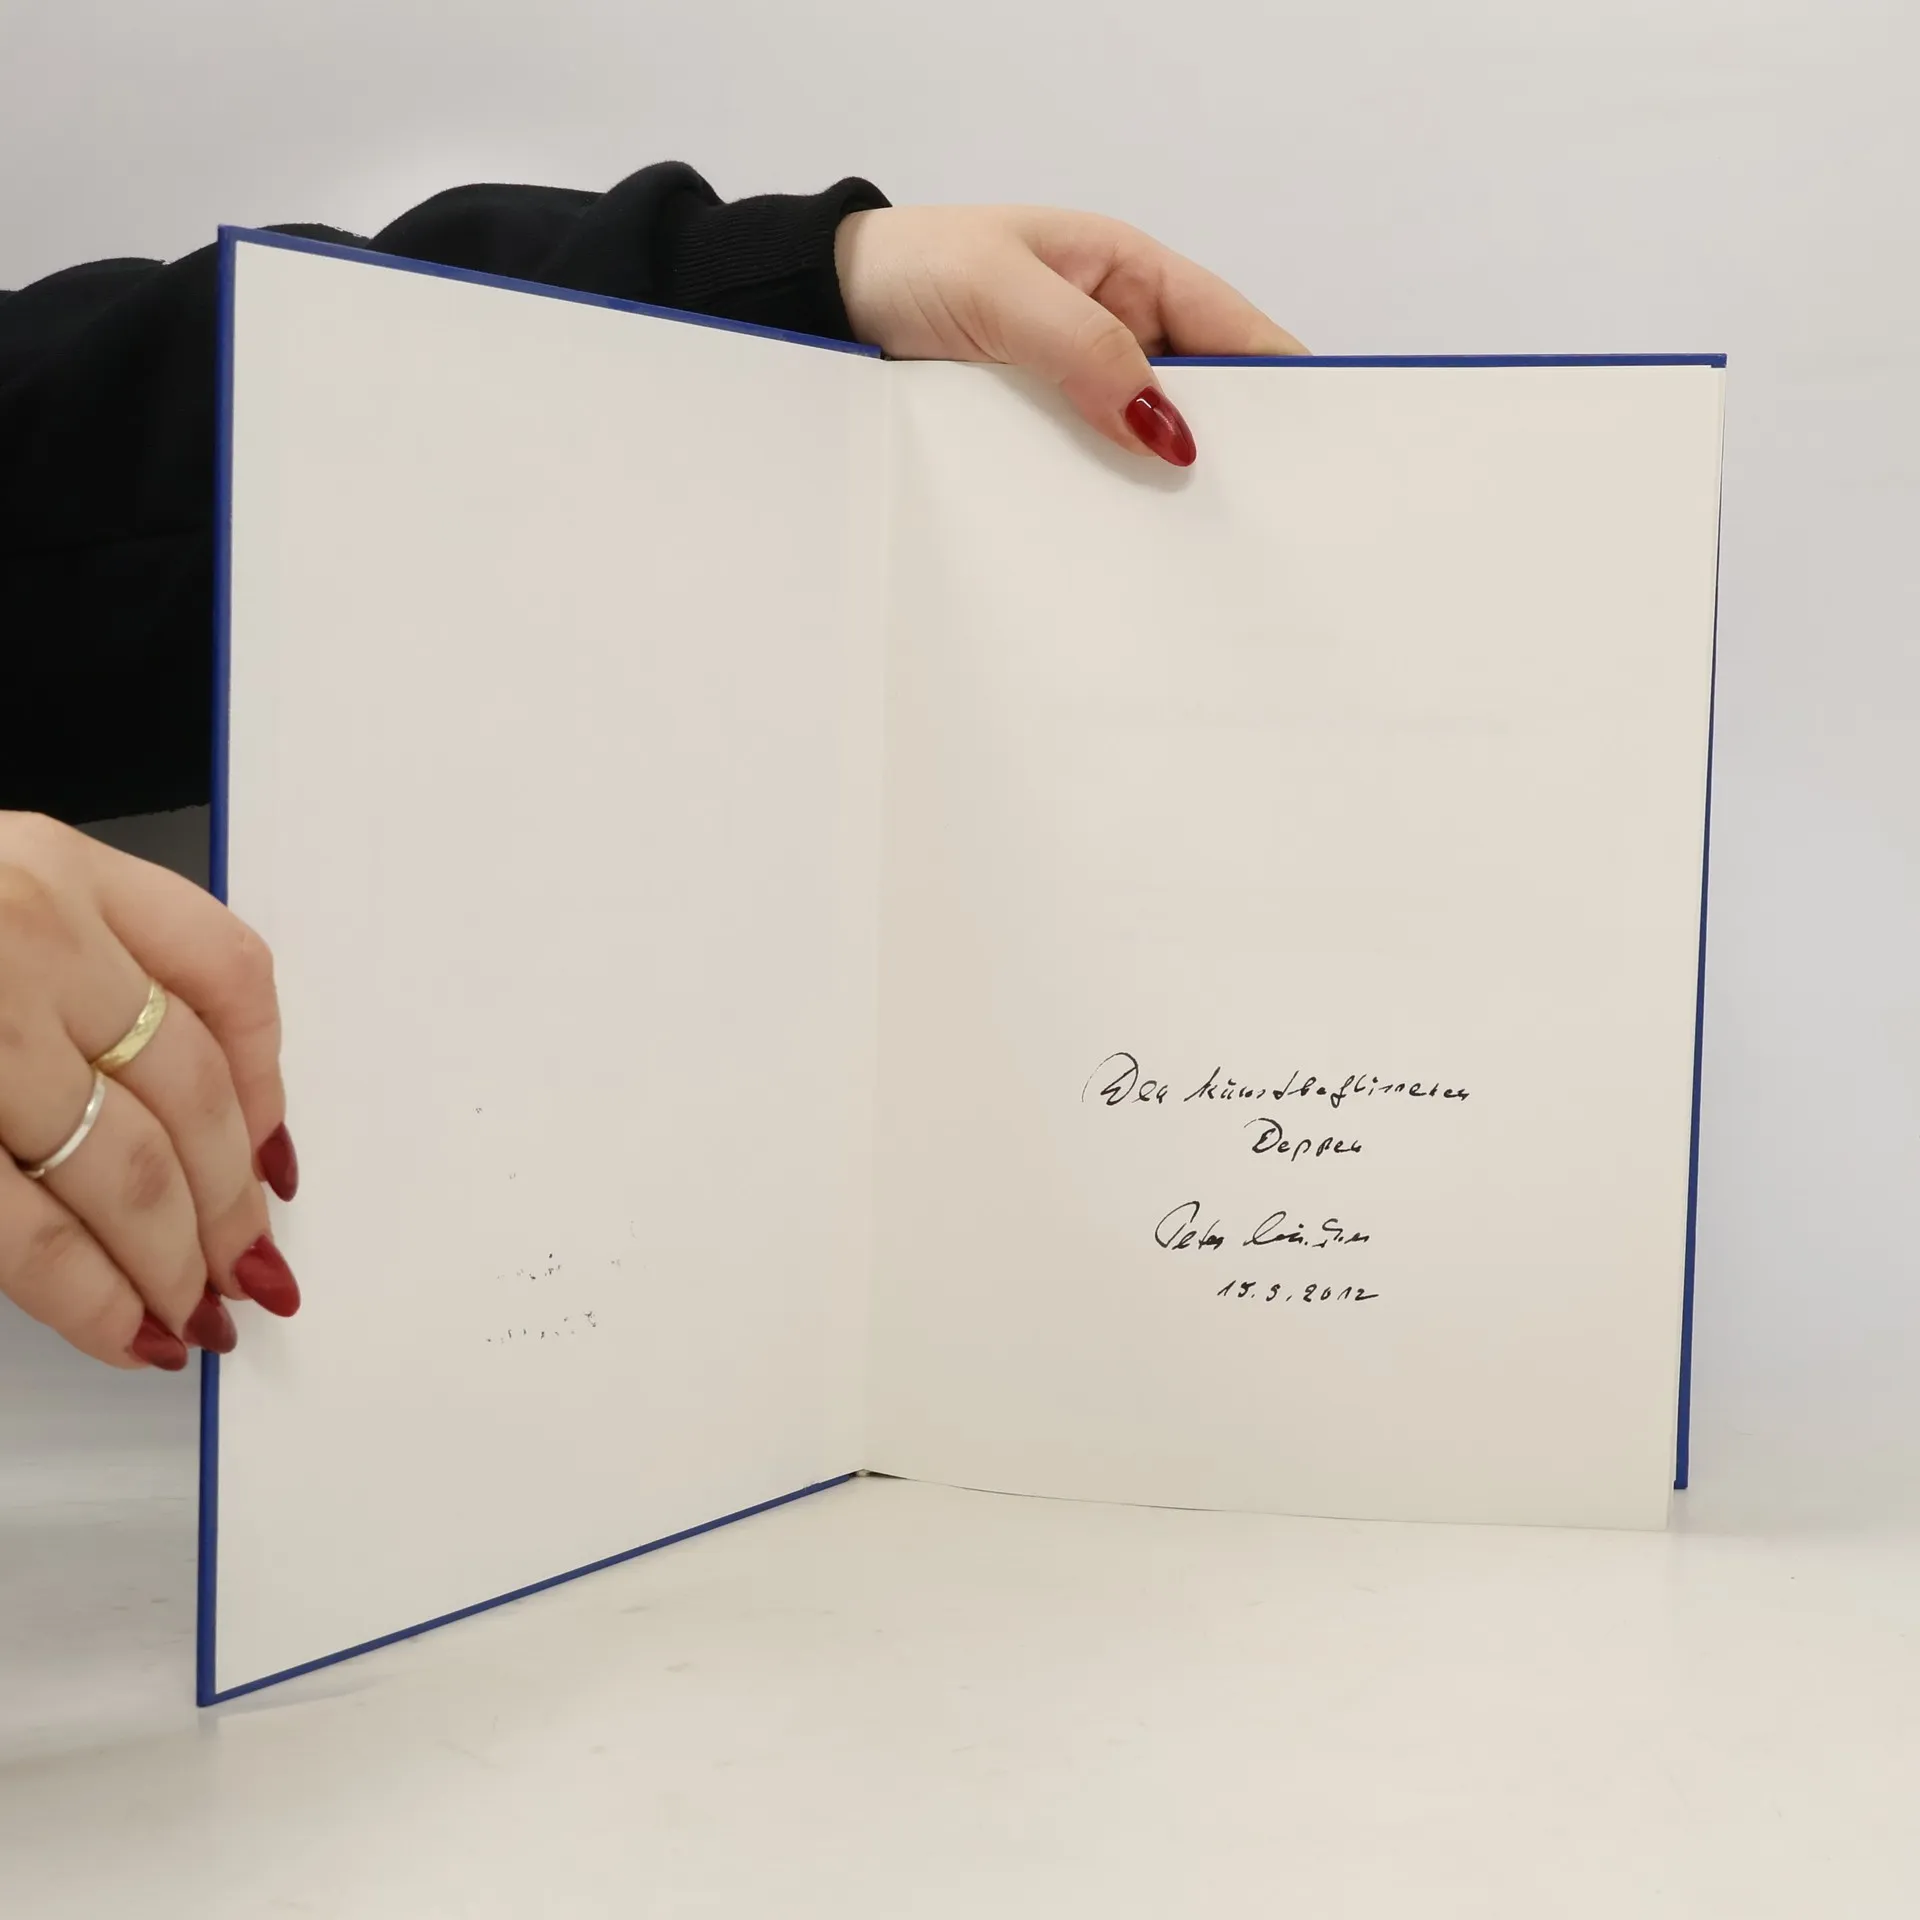 Den kunstbeflissenen
Deppen
Peter
15.3.2012